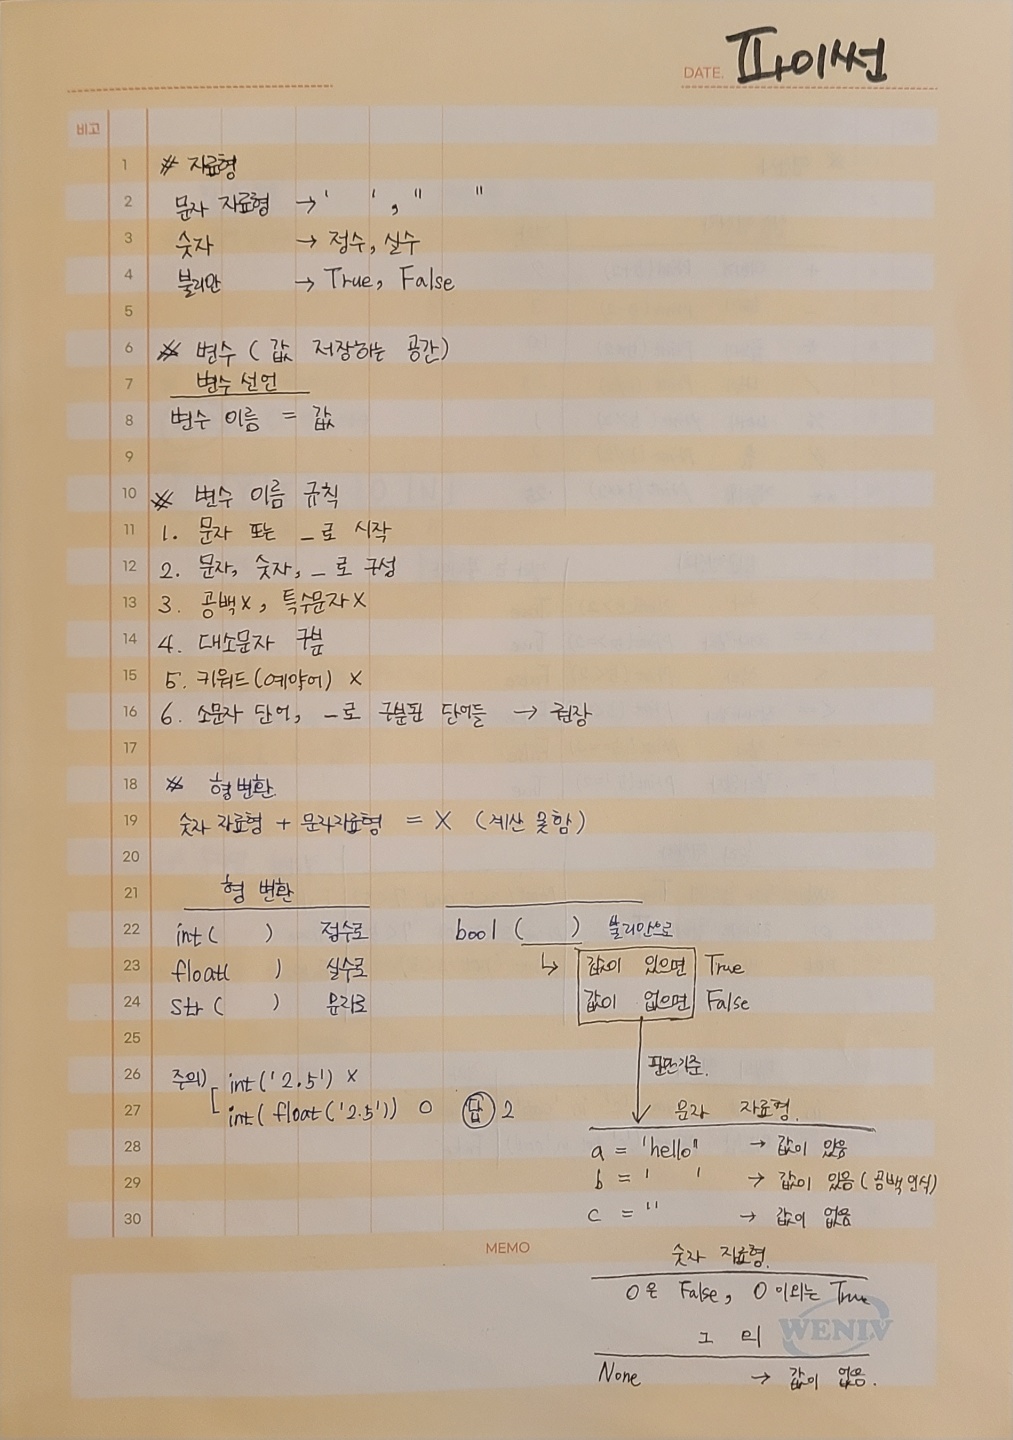 DATE. 파이썬
비고
1 # 자료형
2 문자 자료형 → ' ', " "
3 숫자 → 정수, 실수
4 불리안 → True, False
5
6 # 변수 ( 값 저장하는 공간)
7 변수 선언
8 변수 이름 = 값
9
10 # 변수 이름 규칙
11 1. 문자 또는 _로 시작
12 2. 문자, 숫자, _로 구성
13 3. 공백X, 특수문자X
14 4. 대소문자 구분
15 5. 키워드(예약어) X
16 6. 소문자 단어, _로 구분된 단어들 → 권장
17
18 # 형변환
19 숫자 자료형 + 문자자료형 = X (계산 못함)
20
21 형 변환
22 int( ) 정수로 bool ( ) 불리안으로
23 float( ) 실수로 ↳ 값이 있으면 True
24 str( ) 문자로 값이 없으면 False
25
판단기준.
26 주의) int('2.5') X
27 int( float('2.5')) O 답 2
문자 자료형.
28 a = 'hello" → 값이 있음
29 b = ' ' → 값이 있음 (공백 인식)
30 c = '' → 값이 없음
MEMO
숫자 자료형.
0은 False, 0 이외는 True
그 외
WENIV
None → 값이 없음.